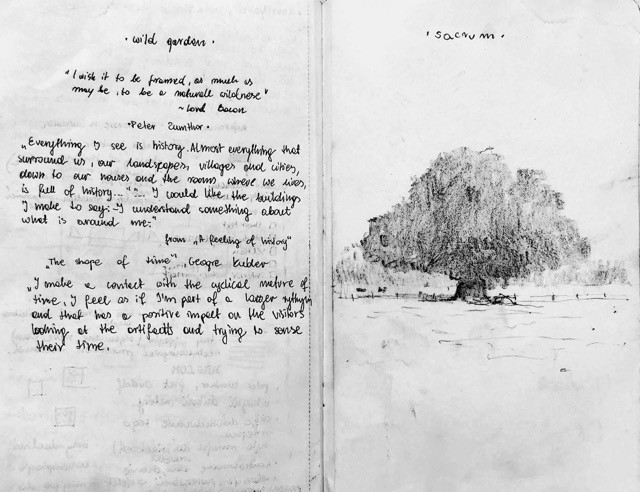 · wild garden ·
"I wish it to be framed, as much as
may be, to be a naturall wildnese"
~ Lord Bacon
· Peter Zumthor ·
„Everything I see is history. Almost everything that
surround us, our landscapes, villages and cities,
down to our houses and the rooms where we lives,
is full of history..." "... I would like the buildings
I make to say: I understand something about
what is around me."
from „A feeling of history"
„The shape of time", Geogre Kubler
„I make a contact with the cyclical nature of
time, I feel as if I'm part of a larger
and that has a positive impact on the visitors
looking at the artifacts and trying to sense
their time.
· sacrum ·